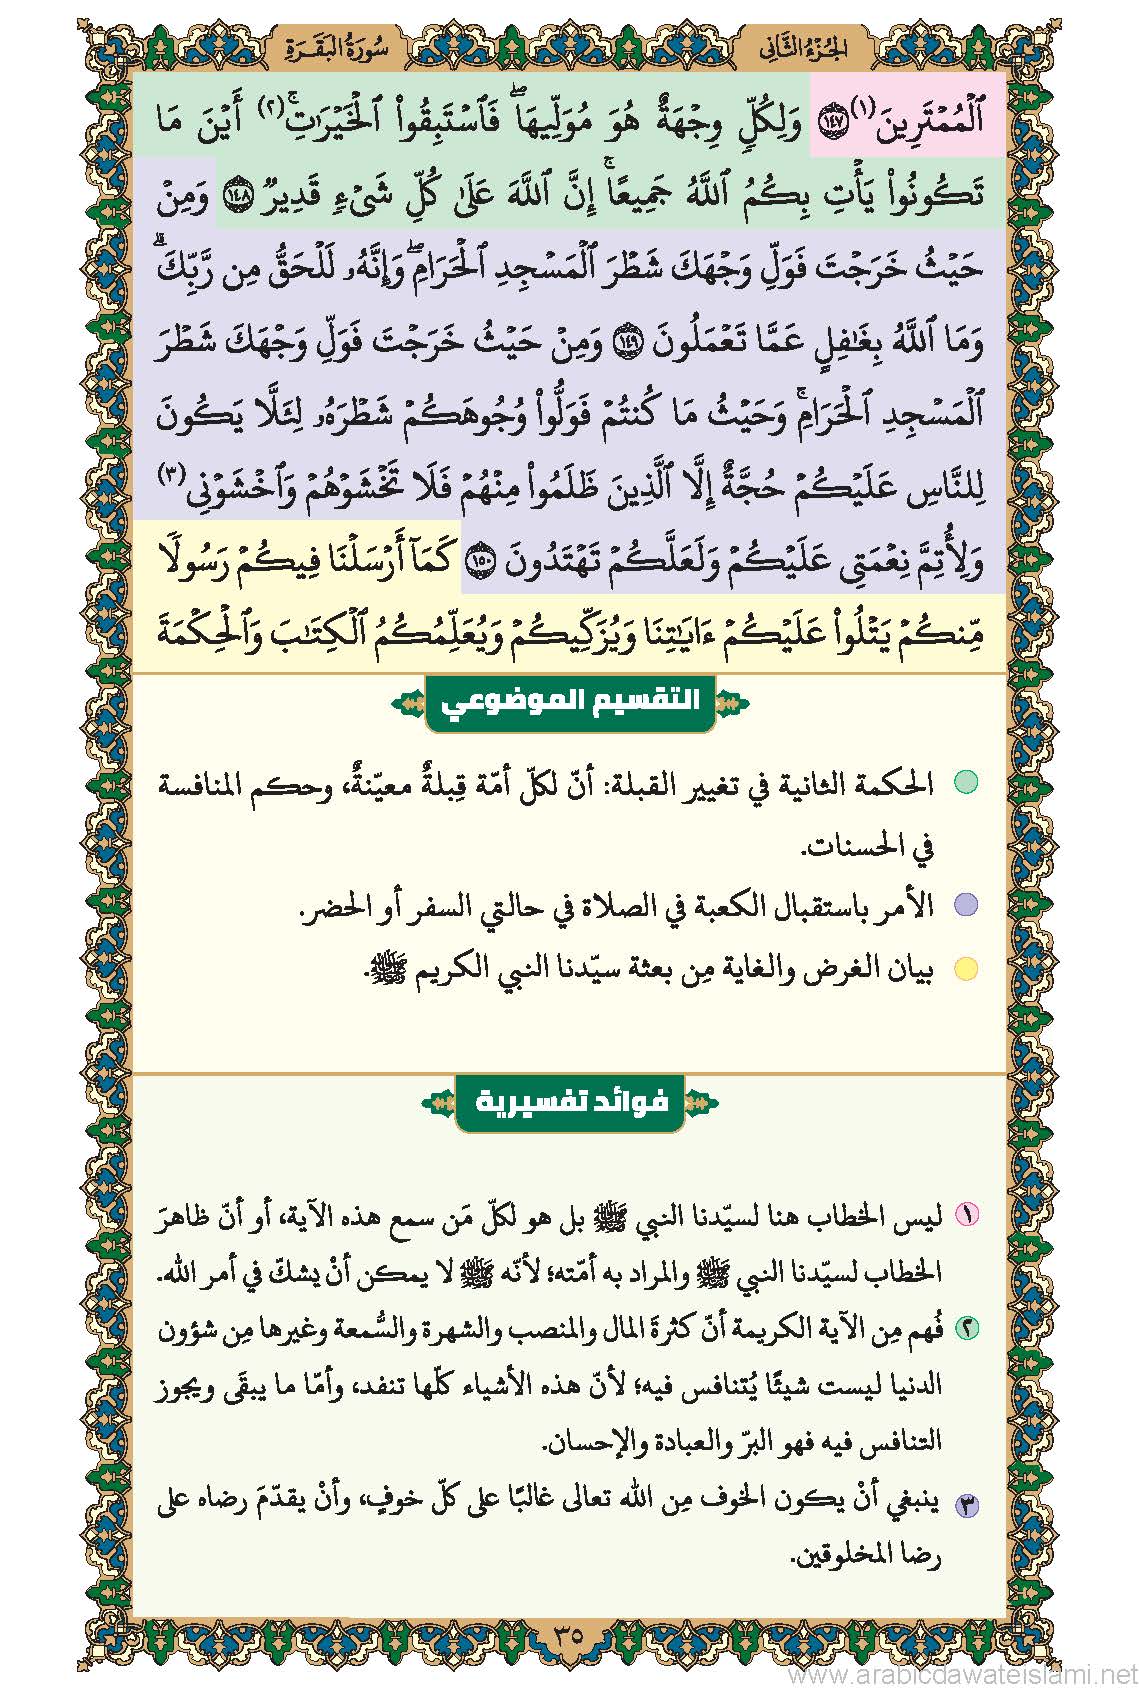 الجُزْءُ الثَّانِى
سُورَةُ البَقَرَةِ
ٱلْمُمْتَرِينَ(١) ١٤٧ وَلِكُلٍّ وِجْهَةٌ هُوَ مُوَلِّيهَاۖ فَٱسْتَبِقُوا۟ ٱلْخَيْرَٰتِۚ(٢) أَيْنَ مَا
تَكُونُوا۟ يَأْتِ بِكُمُ ٱللَّهُ جَمِيعًاۚ إِنَّ ٱللَّهَ عَلَىٰ كُلِّ شَىْءٍ قَدِيرٌ ١٤٨ وَمِنْ
حَيْثُ خَرَجْتَ فَوَلِّ وَجْهَكَ شَطْرَ ٱلْمَسْجِدِ ٱلْحَرَامِۖ وَإِنَّهُۥ لَلْحَقُّ مِن رَّبِّكَۗ
وَمَا ٱللَّهُ بِغَٰفِلٍ عَمَّا تَعْمَلُونَ ١٤٩ وَمِنْ حَيْثُ خَرَجْتَ فَوَلِّ وَجْهَكَ شَطْرَ
ٱلْمَسْجِدِ ٱلْحَرَامِۚ وَحَيْثُ مَا كُنتُمْ فَوَلُّوا۟ وُجُوهَكُمْ شَطْرَهُۥ لِئَلَّا يَكُونَ
لِلنَّاسِ عَلَيْكُمْ حُجَّةٌ إِلَّا ٱلَّذِينَ ظَلَمُوا۟ مِنْهُمْ فَلَا تَخْشَوْهُمْ وَٱخْشَوْنِى(٣)
وَلِأُتِمَّ نِعْمَتِى عَلَيْكُمْ وَلَعَلَّكُمْ تَهْتَدُونَ ١٥٠ كَمَآ أَرْسَلْنَا فِيكُمْ رَسُولًا
مِّنكُمْ يَتْلُوا۟ عَلَيْكُمْ ءَايَٰتِنَا وَيُزَكِّيكُمْ وَيُعَلِّمُكُمُ ٱلْكِتَٰبَ وَٱلْحِكْمَةَ
التقسيم الموضوعي
الحكمة الثانية في تغيير القبلة: أنّ لكلّ أمّة قِبلةٌ معيّنةٌ، وحكم المنافسة
في الحسنات.
الأمر باستقبال الكعبة في الصلاة في حالتي السفر أو الحضر.
بيان الغرض والغاية مِن بعثة سيّدنا النبي الكريم ﷺ.
فوائد تفسيرية
١ ليس الخطاب هنا لسيّدنا النبي ﷺ بل هو لكلّ مَن سمع هذه الآية، أو أنّ ظاهرَ
الخطاب لسيّدنا النبي ﷺ والمراد به أمّته؛ لأنّه ﷺ لا يمكن أنْ يشكّ في أمر الله.
٢ فُهم مِن الآية الكريمة أنّ كثرةَ المال والمنصب والشهرة والسُّمعة وغيرها مِن شؤون
الدنيا ليست شيئًا يُتنافس فيه؛ لأنّ هذه الأشياء كلّها تنفد، وأمّا ما يبقَى ويجوز
التنافس فيه فهو البرّ والعبادة والإحسان.
٣ ينبغي أنْ يكون الخوف مِن الله تعالى غالبًا على كلّ خوفٍ، وأنْ يقدّمَ رضاه على
رضا المخلوقين.
٣٥
www.arabicdawateislami.net